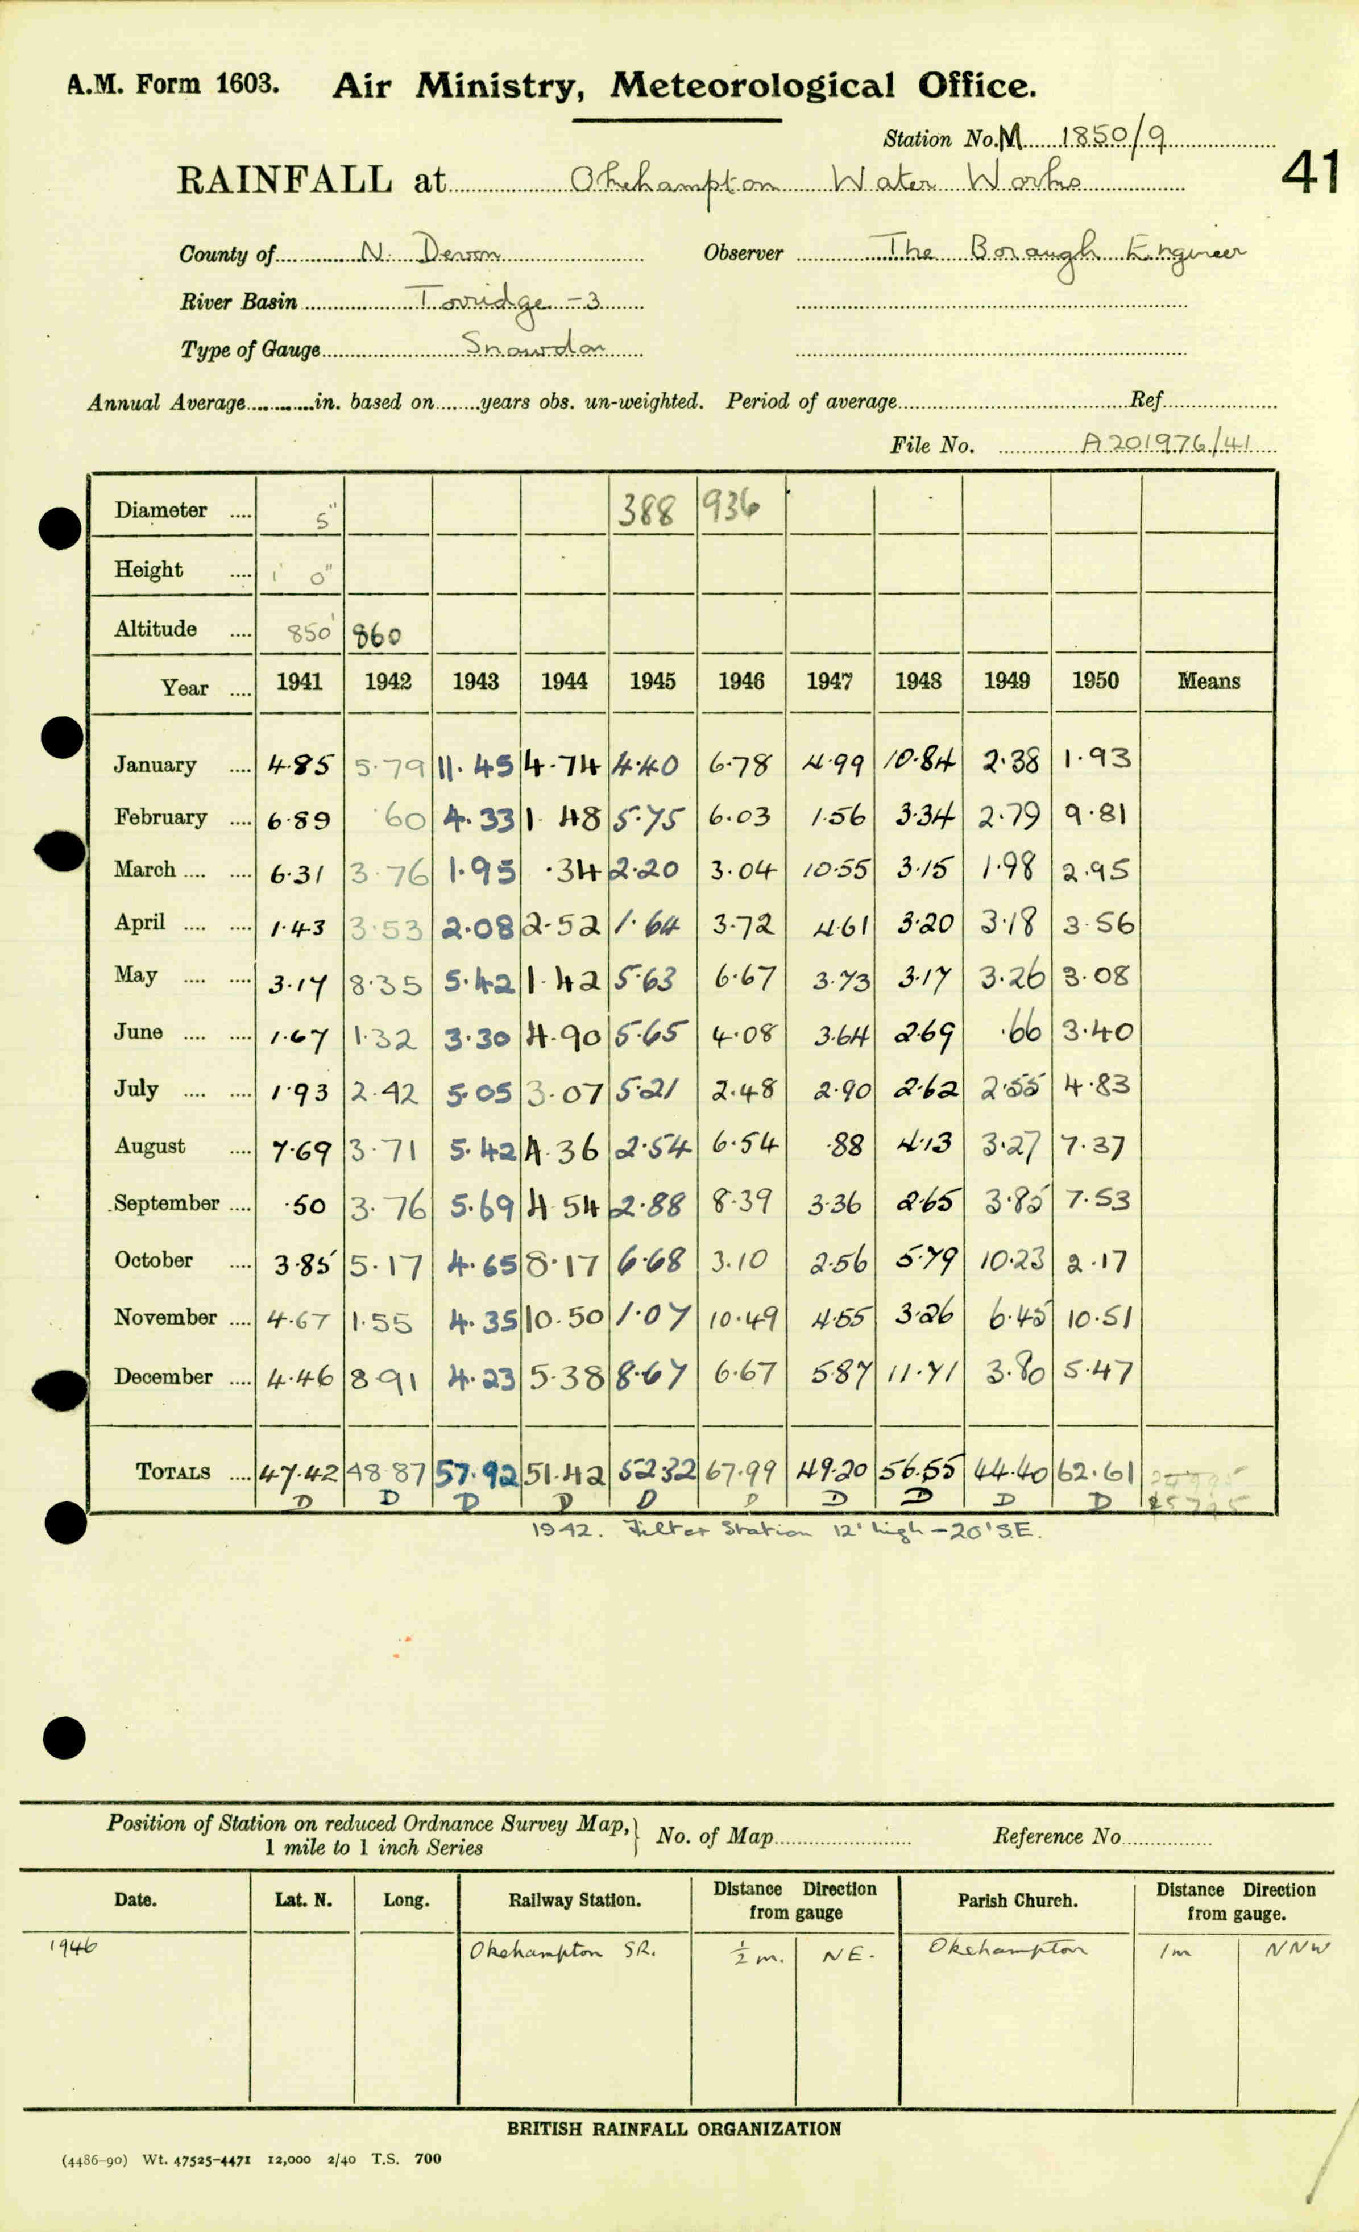 A.M. Form 1603. Air Ministry, Meteorological Office.
Station No. M 1850/9
41
RAINFALL at Okehampton Water Works
County of N. Devon Observer The Borough Engineer
River Basin Torridge -3
Type of Gauge Snowdon
Annual Average............in. based on........years obs. un-weighted. Period of average........Ref........
File No. A201976/41
Diameter .... 5" 388 936
Height .... 1' 0"
Altitude .... 850' 860
Year .... 1941 1942 1943 1944 1945 1946 1947 1948 1949 1950 Means
January .... 4·85 5·79 11·45 4·74 4·40 6·78 4·99 10·84 2·38 1·93
February .... 6·89 ·60 4·33 1 48 5·75 6·03 1·56 3·34 2·79 9·81
March .... .... 6·31 3·76 1·95 ·34 2·20 3·04 10·55 3·15 1·98 2·95
April .... .... 1·43 3·53 2·08 2·52 1·64 3·72 4·61 3·20 3·18 3·56
May .... .... 3·17 8·35 5·42 1·42 5·63 6·67 3·73 3·17 3·26 3·08
June .... .... 1·67 1·32 3·30 4·90 5·65 4·08 3·64 2·69 ·66 3·40
July .... .... 1·93 2·42 5·05 3·07 5·21 2·48 2·90 2·62 2·55 4·83
August .... 7·69 3·71 5·42 4·36 2·54 6·54 ·88 4·13 3·27 7·37
September .... ·50 3·76 5·69 4 54 2·88 8·39 3·36 2·65 3·85 7·53
October .... 3·85 5·17 4·65 8·17 6·68 3·10 2·56 5·79 10·23 2·17
November .... 4·67 1·55 4·35 10·50 1·07 10·49 4·55 3·26 6·45 10·51
December .... 4·46 8·91 4·23 5·38 8·67 6·67 5·87 11·71 3·80 5·47
TOTALS .... 47·42 48·87 57·92 51·42 52·32 67·99 49·20 56·55 44·40 62·61
D D D D D D D D D D
1942. Filter Station 12' high - 20' S.E.
Position of Station on reduced Ordnance Survey Map,} No. of Map........ Reference No........
1 mile to 1 inch Series
Date. Lat. N. Long. Railway Station. Distance Direction from gauge Parish Church. Distance Direction from gauge.
1946 Okehampton SR. ½ m. NE. Okehampton 1m NNW
BRITISH RAINFALL ORGANIZATION
(4486-90) Wt. 47525-4471 12,000 2/40 T.S. 700